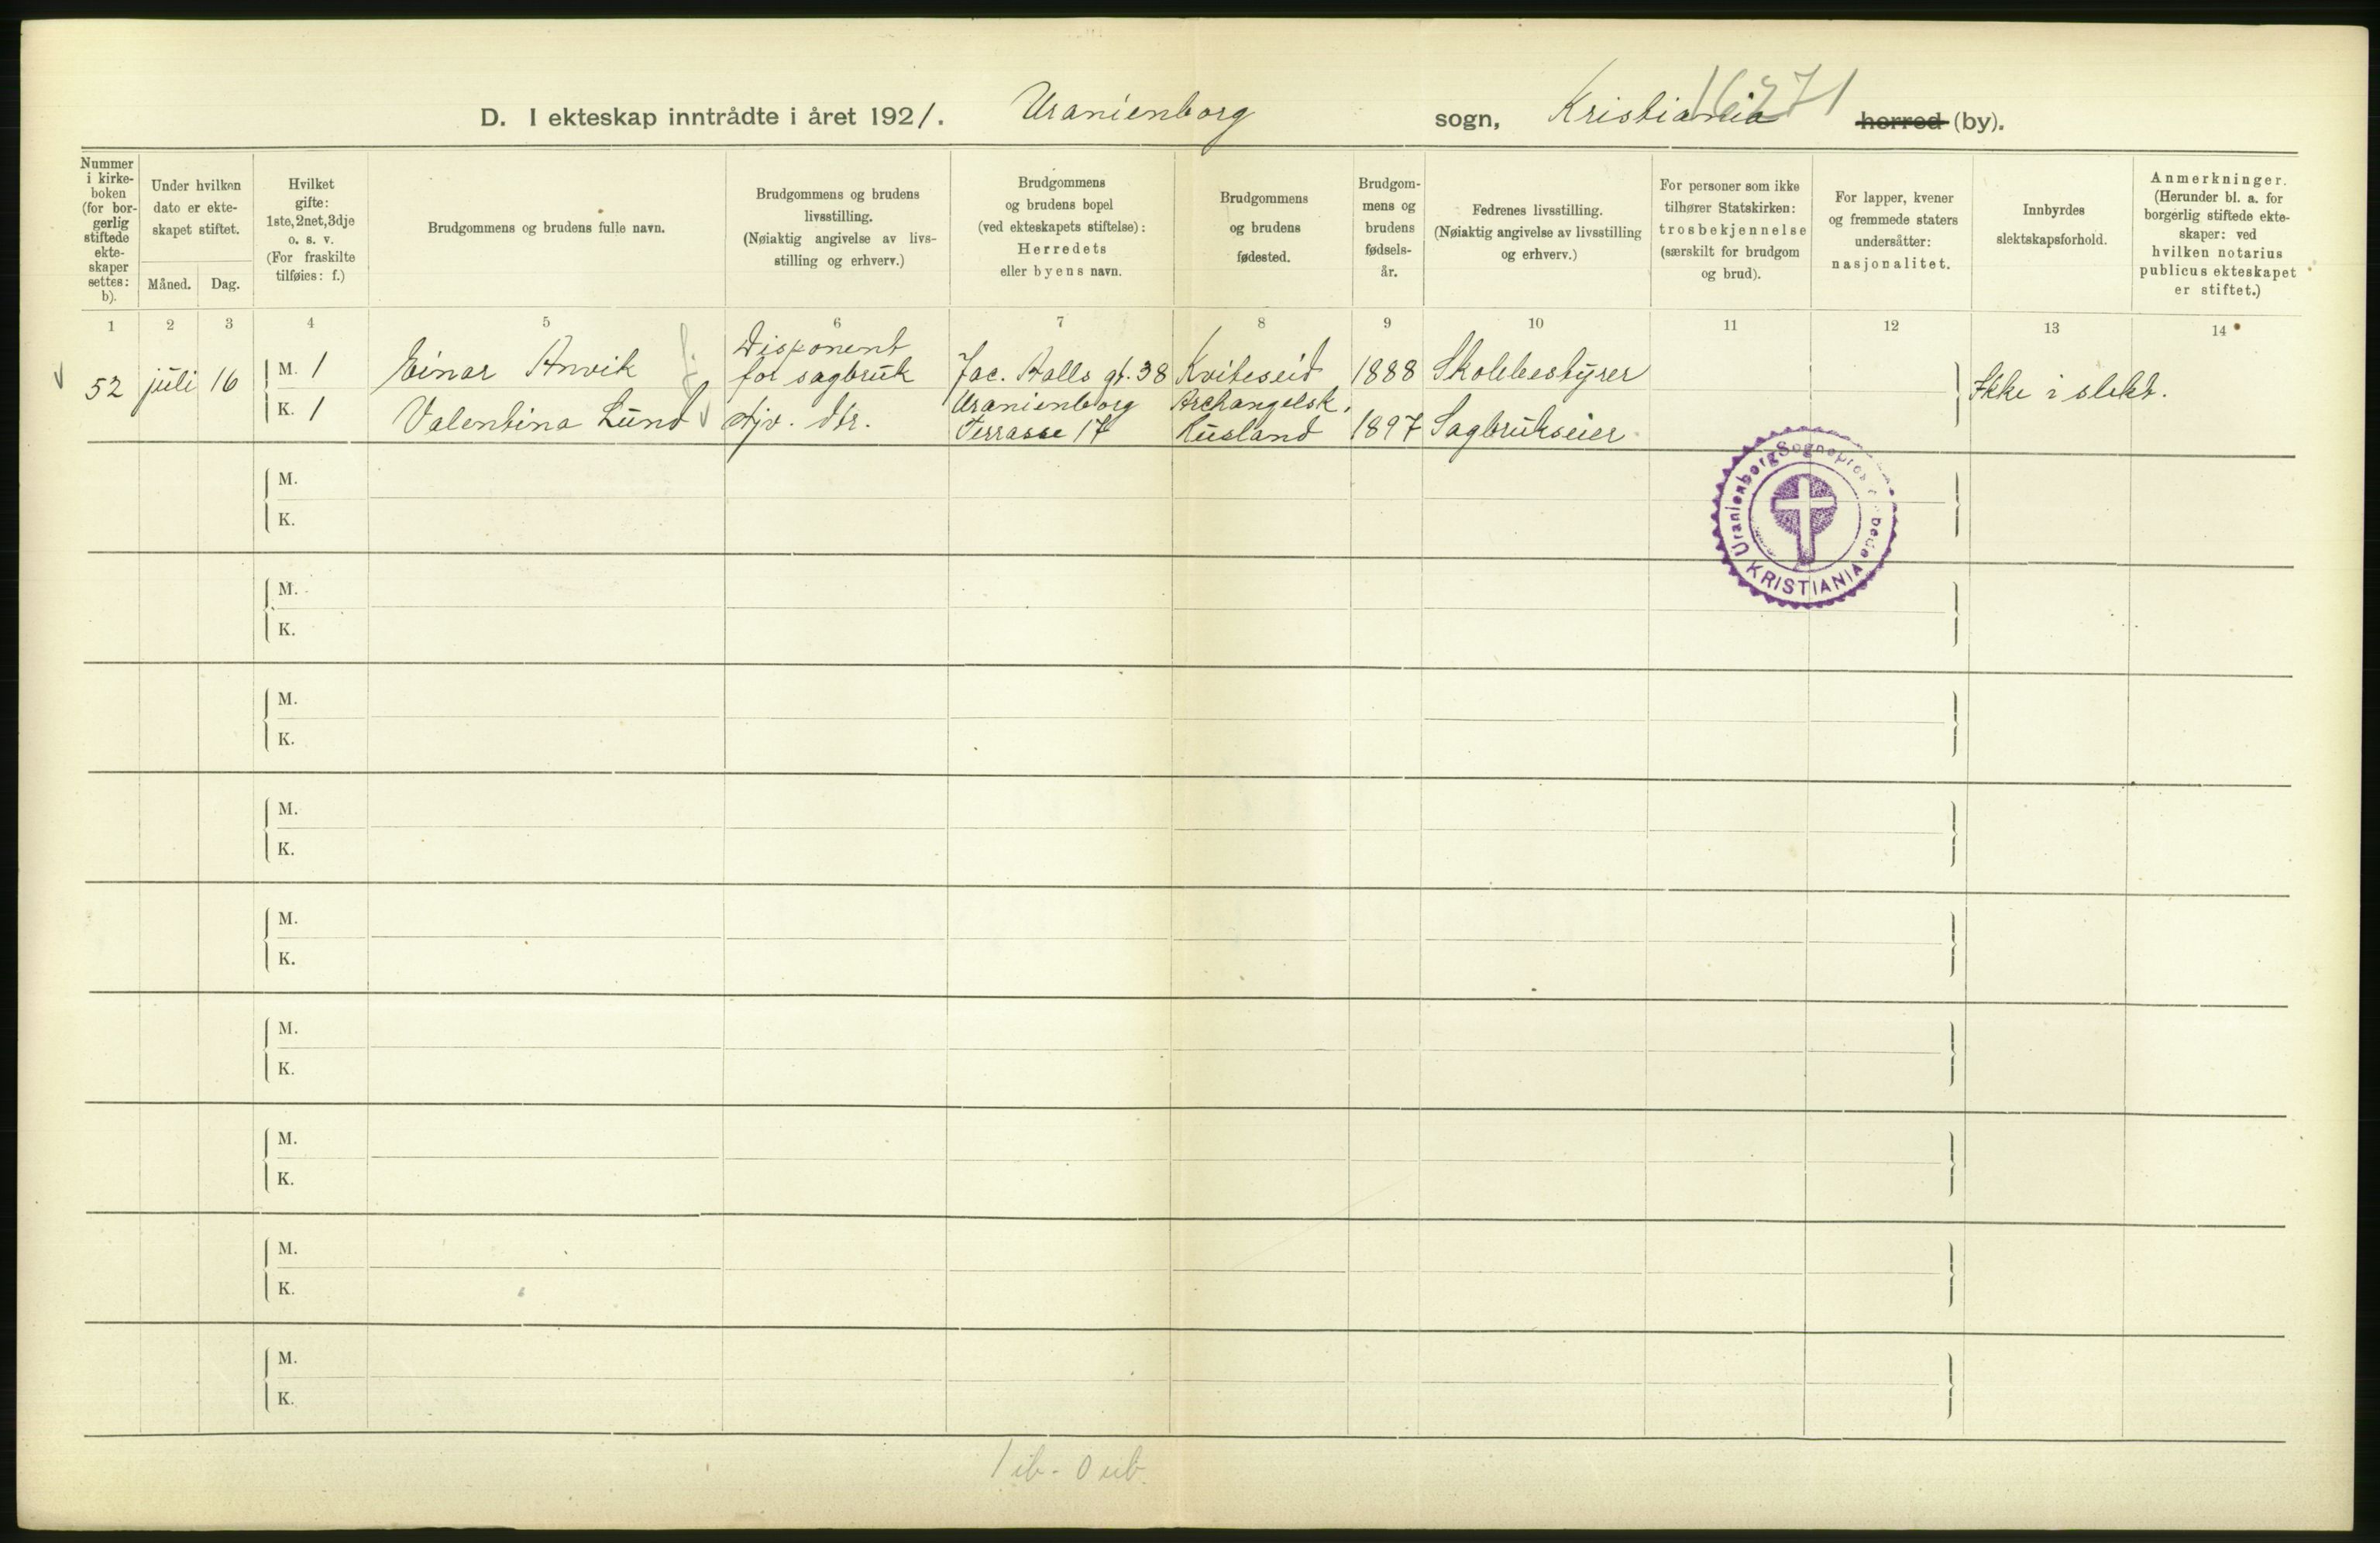 16271
D. I ekteskap inntrådte i året 1921. Uranienborg sogn, Kristiania herred (by).
Nummer i kirke-boken (for bor-gerlig stiftede ekte-skaper settes: b).
Under hvilken dato er ekte-skapet stiftet.
Måned. Dag.
Hvilket gifte: 1ste, 2net, 3dje o. s. v. (For fraskilte tilføies: f.)
Brudgommens og brudens fulle navn.
Brudgommens og brudens livsstilling. (Nøiaktig angivelse av livs-stilling og erhverv.)
Brudgommens og brudens bopel (ved ekteskapets stiftelse): Herredets eller byens navn.
Brudgommens og brudens fødested.
Brudgom-mens og brudens fødsels-år.
Fedrenes livsstilling. (Nøiaktig angivelse av livsstilling og erhverv.)
For personer som ikke tilhører Statskirken: trosbekjennelse (særskilt for brudgom og brud).
For lapper, kvener og fremmede staters undersåtter: nasjonalitet.
Innbyrdes slektskapsforhold.
Anmerkninger. (Herunder bl. a. for borgerlig stiftede ekte-skaper: ved hvilken notarius publicus ekteskapet er stiftet.)
1 2 3 4 5 6 7 8 9 10 11 12 13 14
52 juli 16 M. 1 Einar Anvik Disponent for sagbruk Jac. Aalls gt. 38 Kviteseid 1888 Skolebestyrer Ikke i slekt.
K. 1 Valentina Lund Uranienborg Terrasse 17 Archangelsk, Rusland 1897 Sagbrukseier
Uranienborg Sogneprest
KRISTIANIA
M.
K.
M.
K.
M.
K.
M.
K.
M.
K.
M.
K.
M.
K.
M.
K.
M.
K.
1 ib. - 0 ub.